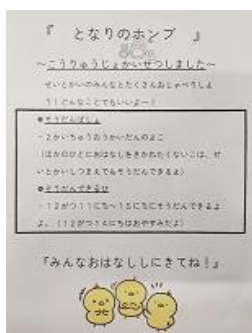 『 となりのホンプ 』
～こうりゅうじょかいせつしました～
せいとかいのみんなとたくさんおしゃべりしよ
う！どんなことでもいいよー！
●そうだんばしょ
－２かいちゅうおうかいだんのよこ
（ほかのひとにおはなしをきかれたくないこは、せ
いとかいしつまえでもそうだんできるよ）
●そうだんできるひ
－１２がつ１１にち～１５にちにそうだんできるよ
よ。（１２がつ１４にちはおやすみだよ）
『みんなおはなししにきてね！』